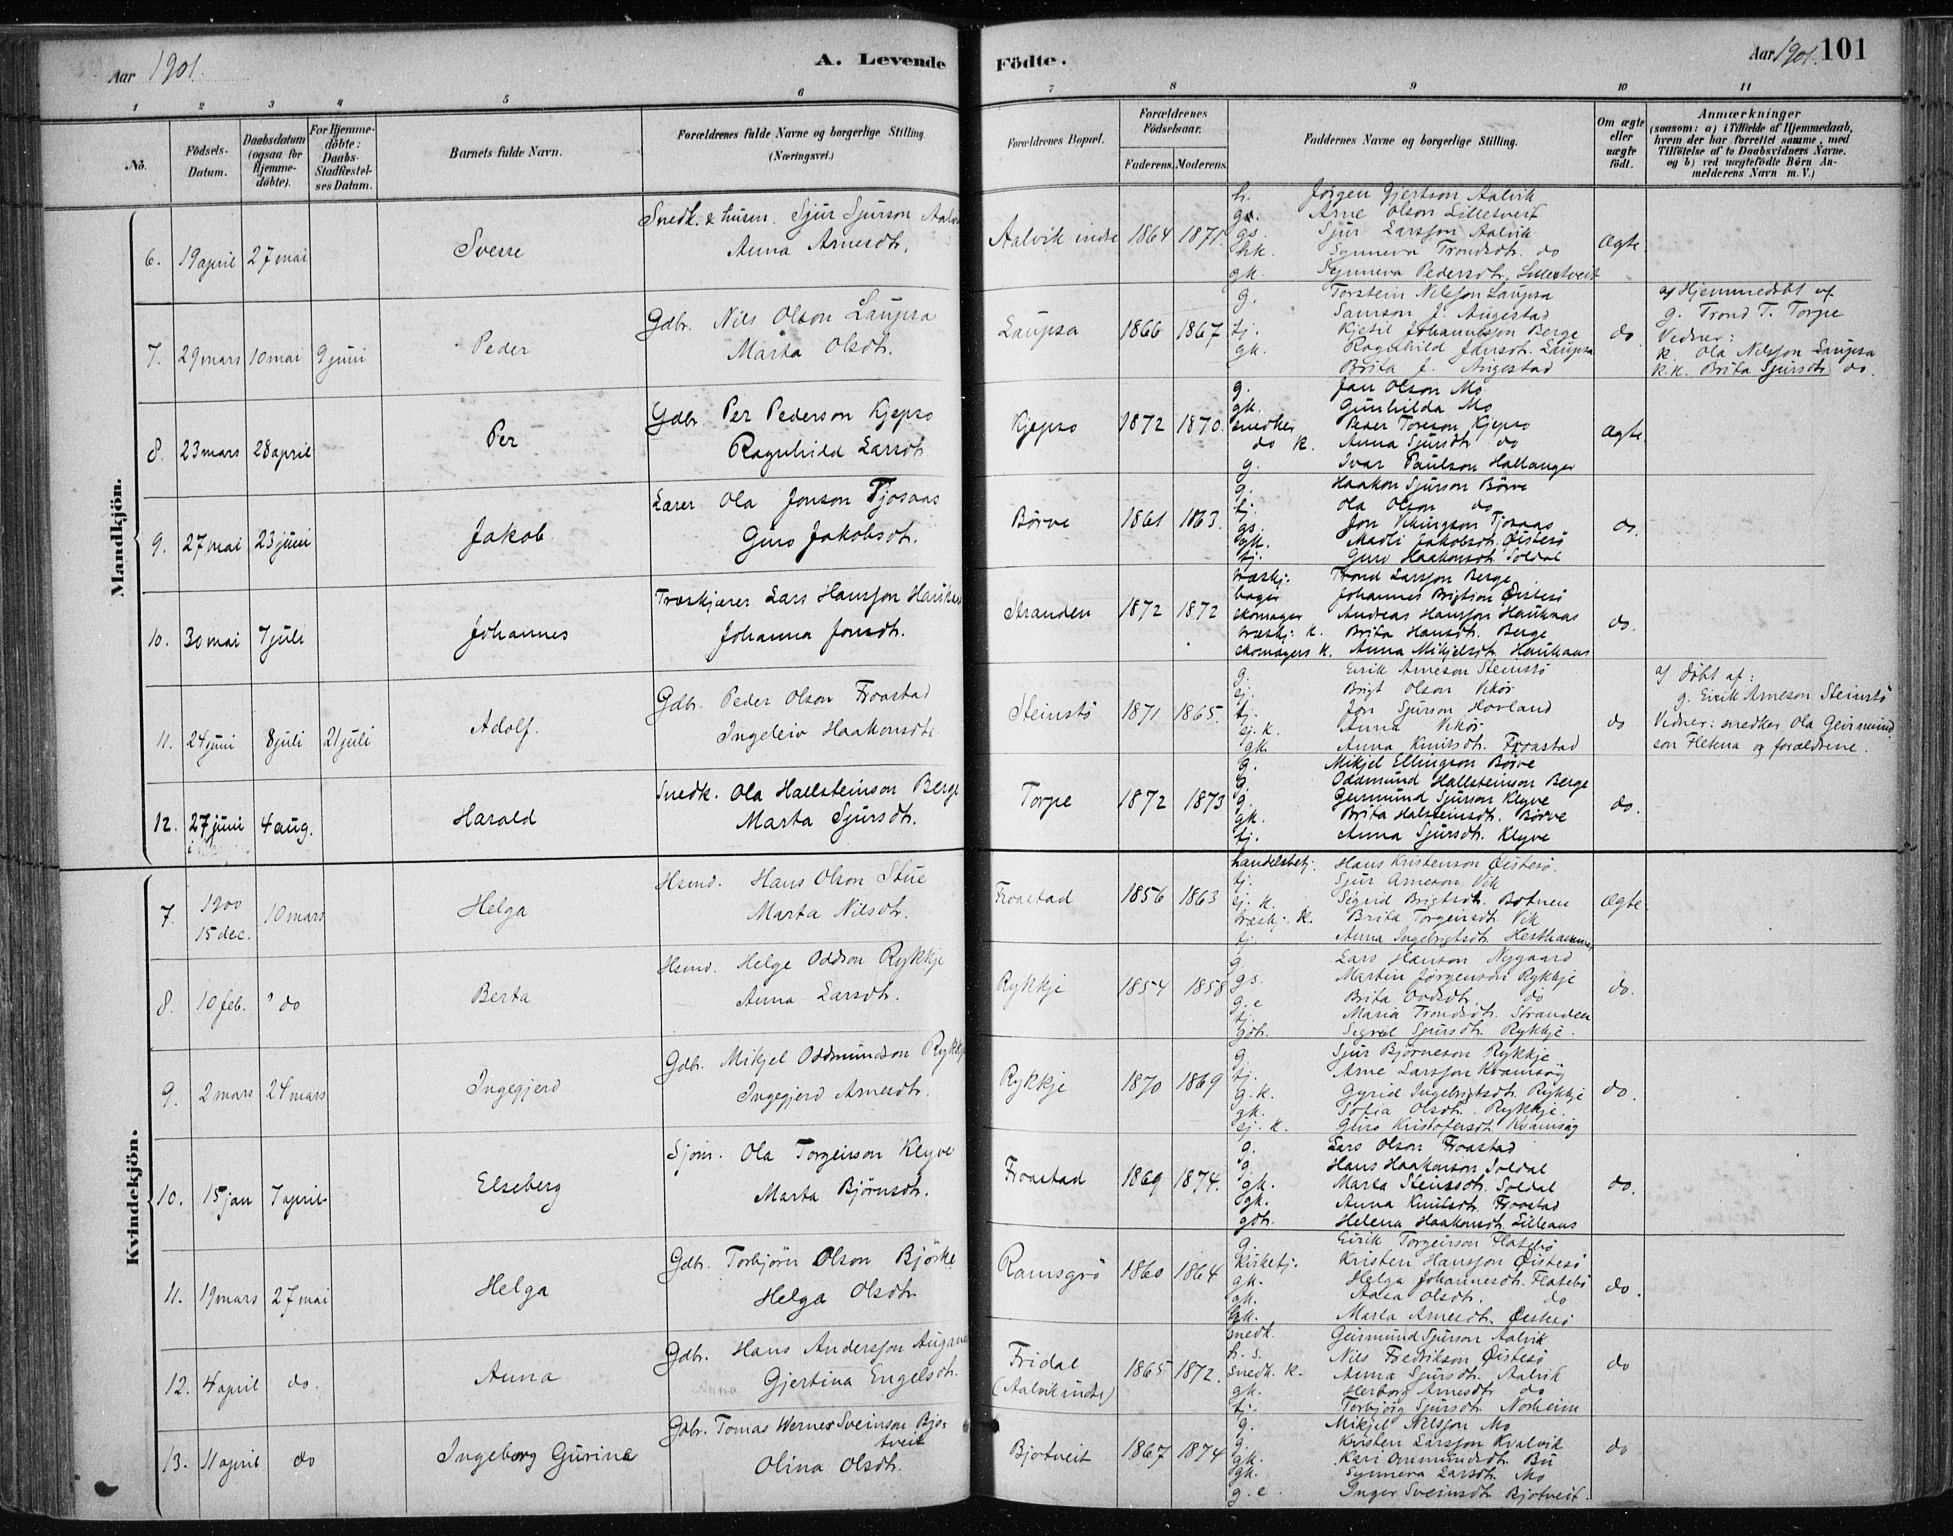 Aar 1901.
A. Levende Födte.
Aar 1901. 101
1 2 3 4 5 6 7 8 9 10 11
No.
Födsels-Datum.
Daabsdatum (ogsaa for Hjemme-döbte).
For Hjemme-döbte: Daabs-Stadfæstel-ses Datum.
Barnets fulde Navn.
Forældrenes fulde Navne og borgerlige Stilling. (Næringsvei.)
Forældrenes Bopæl.
Forældrenes Födselsaar.
Faderens. Moderens.
Faddernes Navne og borgerlige Stilling.
Om ægte eller uægte födt.
Anmærkninger
(saasom: a) i Tilfælde af Hjemmedaab, hvem der har forrettet samme, med Tilföielse af to Daabsvidners Navne, og b) ved uægtefödte Börn An-melderens Navn m. V.)
Mandkjön.
6. 19 april 27 mai Sverre
Snedk. & husm. Sjur Sjurson Aalvik
Anna Arnesdtr.
Aalvik indre 1864 1871.
h. Jörgen Gjertson Aalvik
gs. Arne Olson Lilletveit
gs. Sjur Larsson Aalvik
hk. Synneva Trondsdtr. do
gk. Synneva Pedersdtr. Lilletveit
Ægte.
7. 29 mars 10 mai 9 juni Peder
Gdbr. Nils Olson Laupsa
Marta Olsdtr.
Laupsa 1866 1867
g. Torstein Nilsson Laupsa
Samson J. Augestad
tj. Kjetil Johannesson Berge
gk. Ragnhild Jansdtr. Laupsa
Brita J. Augestad
do.
a) Hjemmedöbt af
g. Trond T. Torpe
Vidner:
k. Ola Nilsson Laupsa
k.k. Brita Sjursdtr. do.
8. 23 mars 28 april Per
Gdbr. Per Pederson Kjepso
Ragnhild Larsdtr
Kjepso 1872 1870.
g. Jan Olson Mo
gk. Gunhilda Mo
snedker Peder Toreson Kjepso
do k. Anna Sjursdtr do
g. Ivar Paulson Hallanger
Ægte.
9. 27 mai 23 juni Jakob
Lærer Ola Jonson Tjosaas
Guro Jakobsdtr.
Börve 1861 1863.
g. Haakon Sjurson Börve
tj. Ola Olson do
gs. Jon Vikingson Tjosaas
gk. Madli Jakobsdtr. Öistesö
tj. Guro Haakonsdtr. Soldal
do.
10. 30 mai 7 juli Johannes
Træskjærer Lars Hansson Haukaas
Johanna Jonsdtr.
Stranden 1872 1872
træskj. Trond Larsson Berge
bager Johannes Brigtson Öistesö
skomager Andreas Hansson Haukaas
træskj. k. Brita Hansdtr. Berge
skomagers k. Anna Mikjelsdtr. Haukaas
do.
11. 24 juni 8 juli 21 juli Adolf.
Gdbr. Peder Olson Froastad
Ingeleiv Haakonsdtr.
Steinstö 1871 1865.
g. Eirik Arneson Steinstö
ej. Brigt Olson Vikör
tj. Jon Sjurson Hovland
ej. k. Anna Vikör
gk. Anna Knutsdtr. Froastad
do
a) döbt af:
g. Eirik Arneson Steinstö
Vidner: snedker Ola Geirmund
son Flotena og forældrene.
12. 27 juni 4 aug. Harald
Snedk. Ola Hallsteinson Berge
Marta Sjursdtr.
Torpe 1872 1873
g. Mikjel Ellingson Börve
g. Oddmund Hallsteinson Berge
g. Geirmund Sjurson Klyve
gk. Brita Halsteinsdtr. Börve
tj. Anna Sjursdtr. Klyve
do.
Kvindekjön.
7. 1900 15 dec. 10 mars Helga
Hsmd. Hans Olson Stue
Marta Nilsdtr.
Froastad 1856 1863
handelsbetj. Hans Kristenson Öistesö.
tj. Sjur Arneson Vik
ej. k. Sigrid Brigtsdtr. Botnen
træskj. k. Brita Torgeirsdtr. Vik
tj. Anna Ingebrigtsdtr. Hesthamar
Ægte.
8. 10 feb. do Berta
Hsmd. Helge Oddson Rykkje
Anna Larsdtr.
Rykkje 1854 1858
g Lars Hanson Nygaard
gs. Martin Jörgenson Rykkje
g.e Brita Oddsdtr. do
tj. Maria Trondsdtr. Stranden
gdtr. Sigrid Sjursdtr. Rykkje.
do.
9. 2 mars 24 mars Ingegjerd
Gdbr. Mikjel Oddmundson Rykkje
Ingegjerd Arnesdtr.
Rykkje 1870 1869
g. Sjur Björneson Rykkje
tj. Arne Larsson Kvamsöy
g.k. Gyrid Ingebrigtsdtr. Rykkje
gk. Sofia Olsdtr. Rykkje.
ej. k. Guro Kristofersdtr. Kvamsöy
do.
10. 15 jan 7 april Elseberg
Sjöm. Ola Torgeirson Klyve
Marta Björnsdtr.
Froastad 1869 1874.
g. Lars Olson Froastad
g. Hans Haakonson Soldal
gk. Marta Steinsdtr. Soldal
gk. Anna Knutsdtr. Froastad
gdtr. Helena Haakonsdtr. Lilleaas
do.
11. 19 mars 27 mai Helga
Gdbr. Torbjörn Olson Björke
Helga Olsdtr
Ramsgrö 1860 1864
g. Eirik Torgeirson Flatebö
kirketj. Kristen Hansson Öistesö
gk. Helga Johannesdtr. Flatebö
gk. Olsdtr. do
gk. Marta Arnesdtr. Öistesö
do.
12. 4 april do. Anna
Gdbr. Hans Andersson Augare
Gjertina Engelsdtr.
Fridal (Aalvik indre) 1865 1872.
snedk. Geirmund Sjurson Aalvik
h. s. Nils Fredrikson Öistesö
snedk. k. Anna Sjursdtr. Aalvik
gk. Herborg Arnesdtr do
tj. Torbjörg Sjursdtr. Norheim
do
13. 11 april do Ingeborg Gurine
Gdbr. Tomas Werner Sveinson Bjo-
tveit
Olina Olsdtr.
Bjotveit 1867 1874
g. Mikjel Nilsson Mo
g. Kristen Larsson Kvalvik
gk. Kari Ommundsdtr. Bu
gk. Synneva Larsdtr. Mo
g. e. Inger Sveinsdtr Bjotveit.
do